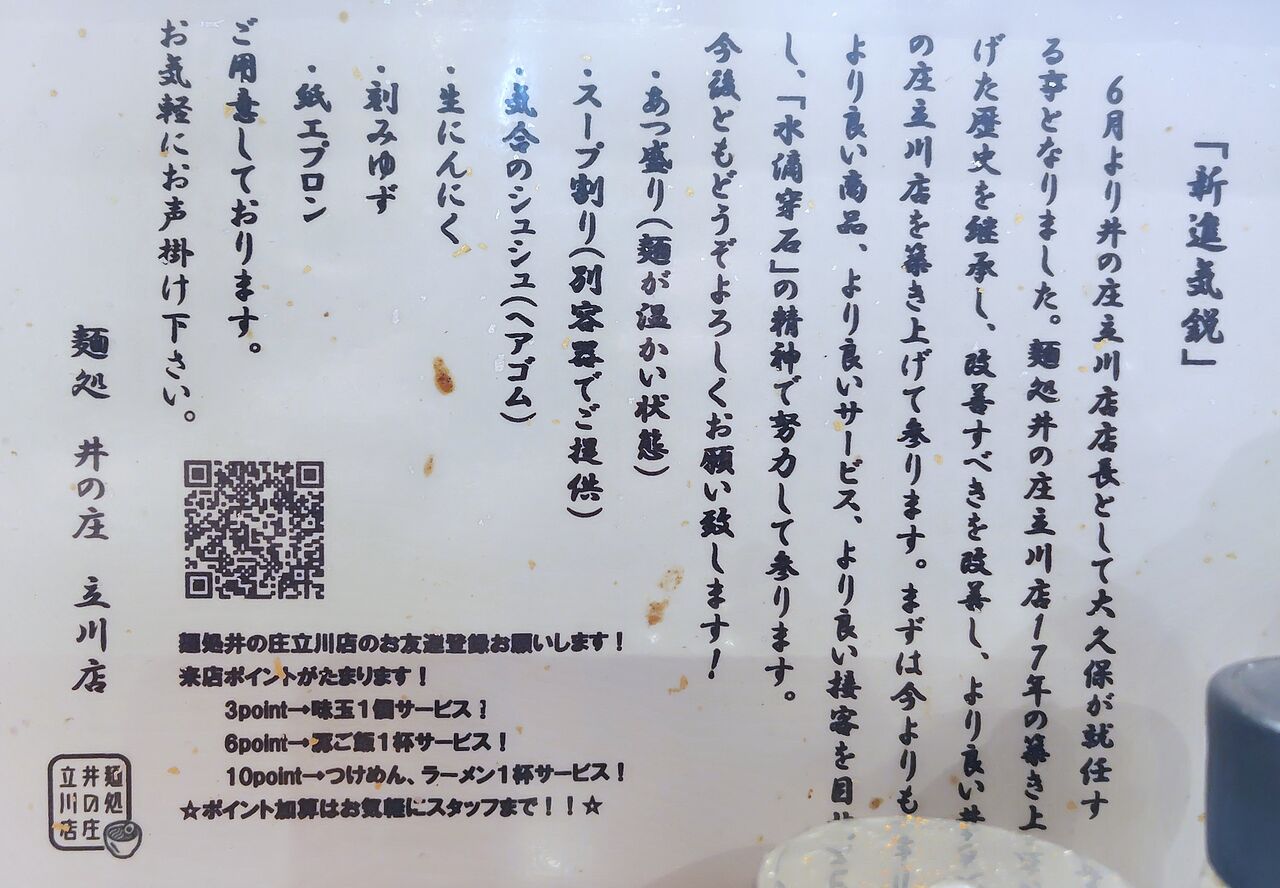 「新進気鋭」
6月より井の庄立川店店長として大久保が就任す
る事となりました。麺処井の庄立川店17年の築き上
げた歴史を継承し、改善すべきを改善し、より良い井
の庄立川店を築き上げて参ります。まずは今よりも
より良い商品、より良いサービス、より良い接客を目
し、「水滴穿石」の精神で努力して参ります。
今後ともどうぞよろしくお願い致します!
・あつ盛り(麺が温かい状態)
・スープ割り(別容器でご提供)
・気合のシュシュ(ヘアゴム)
・生にんにく
・刻みゆず
・紙エプロン
ご用意しております。
お気軽にお声掛け下さい。
麺処 井の庄 立川店
麺処井の庄立川店のお友達登録お願いします!
来店ポイントがたまります!
3point→味玉1個サービス!
6point→ご飯1杯サービス!
10point→つけめん、ラーメン1杯サービス!
☆ポイント加算はお気軽にスタッフまで!!☆
麺処
井の庄
立川店